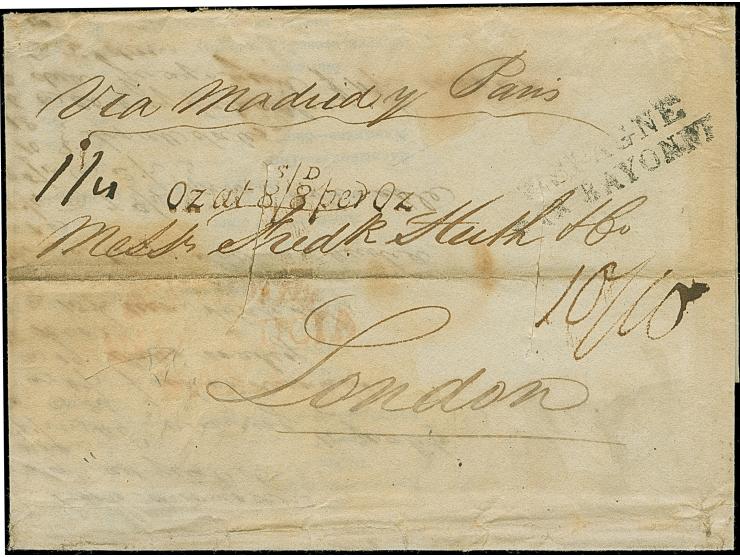 Via Madrid y Paris
ESPAGNE
PAR BAYONNE
1/4
S/D
Oz at 8/8 per Oz
Messrs Fredk Huth & Co
10/10
London